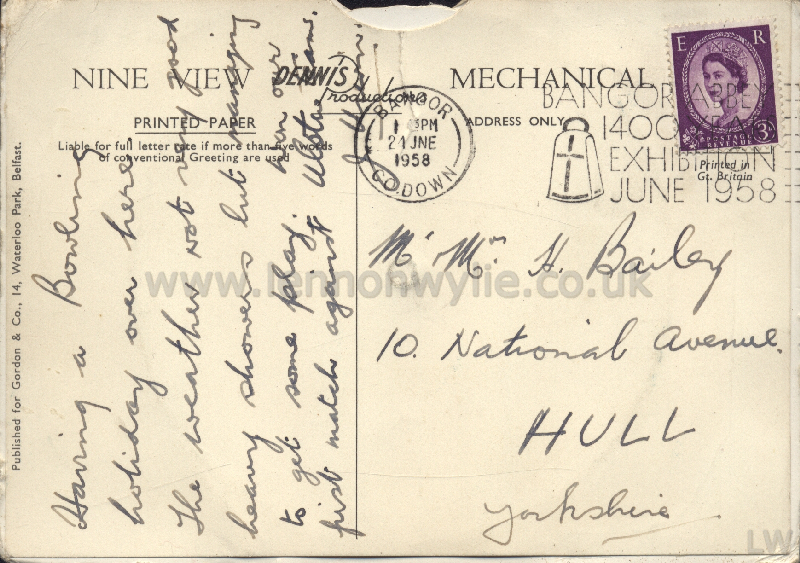 NINE VIEW DENNIS Productions MECHANICAL
PRINTED PAPER
ADDRESS ONLY
Liable for full letter rate if more than five words
of conventional Greeting are used
Published for Gordon & Co., 14, Waterloo Park, Belfast.
Having a Bowling
holiday over here
The weather not very good
heavy showers but managing
to get some play. Won our
first match against Ulster
BANGOR
PM
24 JNE
1958
CO. DOWN
BANGOR ABBEY
1400
EXHIBITION
JUNE 1958
E R
POSTAGE REVENUE
3D
Printed in
Gt. Britain
Mr Mrs H. Bailey
10. National Avenue.
HULL
Yorkshire
www.lennonwylie.co.uk
LW